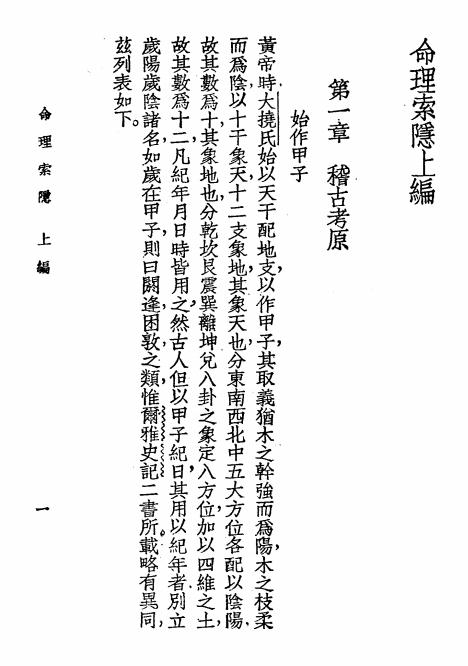 命理索隱上編
第一章　稽古考原
始作甲子
黃帝時,大撓氏始以天干配地支,以作甲子,其取義猶木之幹強而爲陽,木之枝柔
而爲陰,以十干象天,十二支象地,其象天也,分東南西北中五大方位各配以陰陽,
故其數爲十,其象地也,分乾坎艮震巽離坤兌八卦之象定八方位,加以四維之土,
故其數爲十二,凡紀年月日時皆用之,然古人但以甲子紀日,其用以紀年者,別立
歲陽歲陰諸名,如歲在甲子,則曰閼逢困敦之類,惟爾雅史記二書所載,略有異同,
茲列表如下。
命理索隱　上編
一